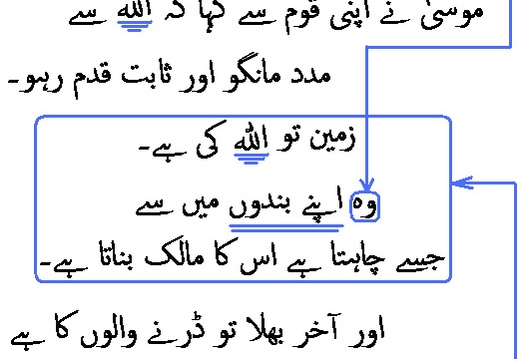 موسیٰ نے اپنی قوم سے کہا کہ اللہ سے
مدد مانگو اور ثابت قدم رہو۔
زمین تو اللہ کی ہے۔
وہ اپنے بندوں میں سے
جسے چاہتا ہے اس کا مالک بناتا ہے۔
اور آخر بھلا تو ڈرنے والوں کا ہے